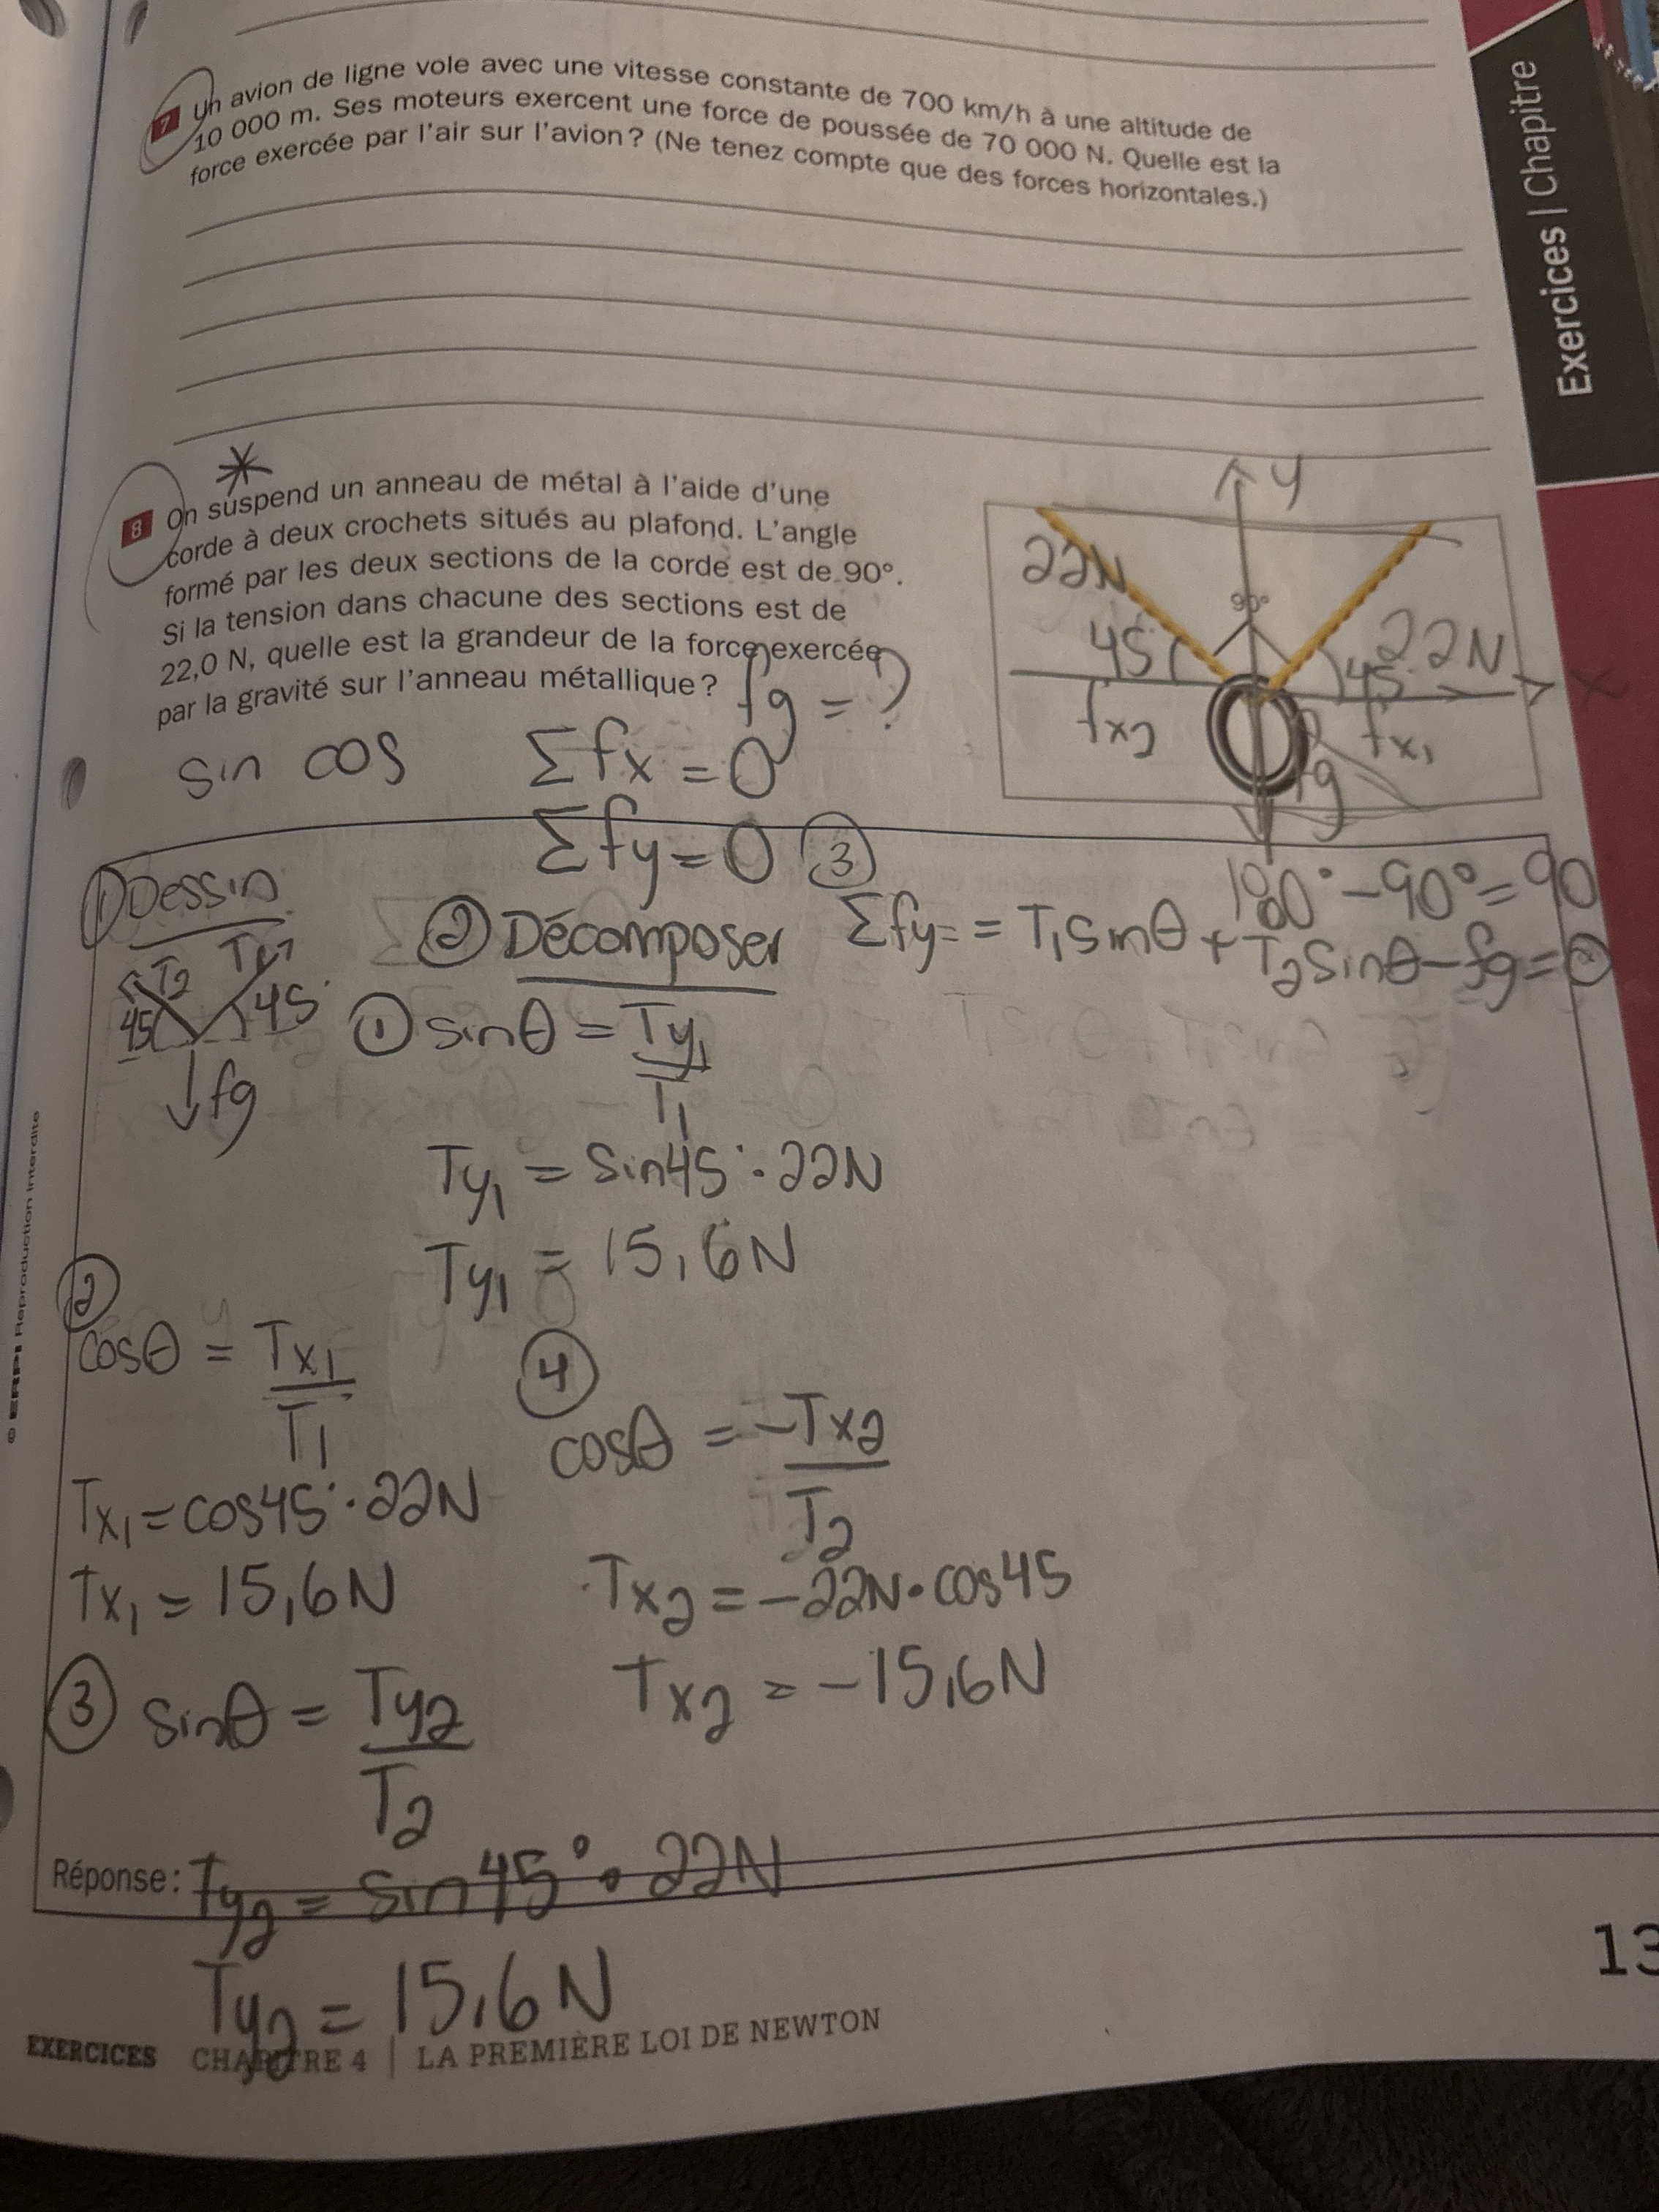 7 Un avion de ligne vole avec une vitesse constante de 700 km/h à une altitude de
10 000 m. Ses moteurs exercent une force de poussée de 70 000 N. Quelle est la
force exercée par l'air sur l'avion ? (Ne tenez compte que des forces horizontales.)
Exercices | Chapitre
8 On suspend un anneau de métal à l'aide d'une
corde à deux crochets situés au plafond. L'angle
formé par les deux sections de la corde est de 90°.
Si la tension dans chacune des sections est de
22,0 N, quelle est la grandeur de la force exercée
par la gravité sur l'anneau métallique ?
fg = ?
y
22N
90°
45°
22N
45°
x
fx2
fx1
fg
sin cos
Σfx = 0
Σfy = 0
180° - 90° = 90
① Dessin
T2 T1
45 45°
fg
② Décomposer
③
Σfy = = T1 sinθ + T2 sinθ - fg = 0
① sinθ = Ty1
T1
Ty1 = sin45° · 22N
Ty1 = 15,6N
②
cosθ = Tx1
T1
Tx1 = cos45° · 22N
Tx1 = 15,6N
④
cosθ = -Tx2
T2
Tx2 = -22N · cos45
Tx2 = -15,6N
③ sinθ = Ty2
T2
Réponse : Ty2 = sin45° · 22N
Ty2 = 15,6N
© ERPI Reproduction interdite
13
EXERCICES CHAPITRE 4 | LA PREMIÈRE LOI DE NEWTON